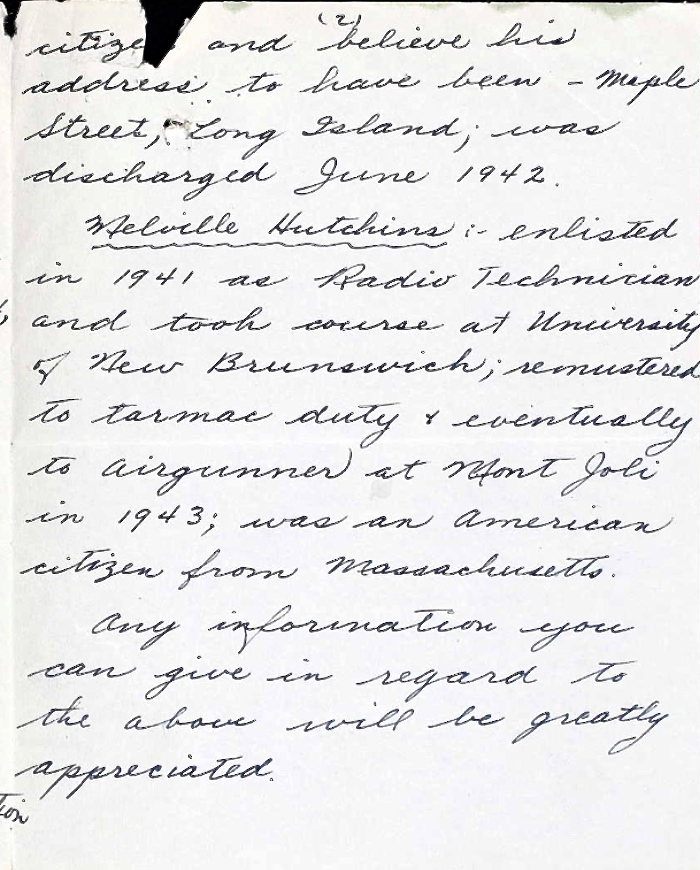 (2)
citizen and believe his
address to have been - Maple
Street, Long Island; was
discharged June 1942.
Melville Hutchins :- enlisted
in 1941 as Radio Technician
and took course at University
of New Brunswick; remustered
to tarmac duty & eventually
to airgunner at Mont Joli
in 1943; was an American
citizen from Massachusetts.
Any information you
can give in regard to
the above will be greatly
appreciated.
tion